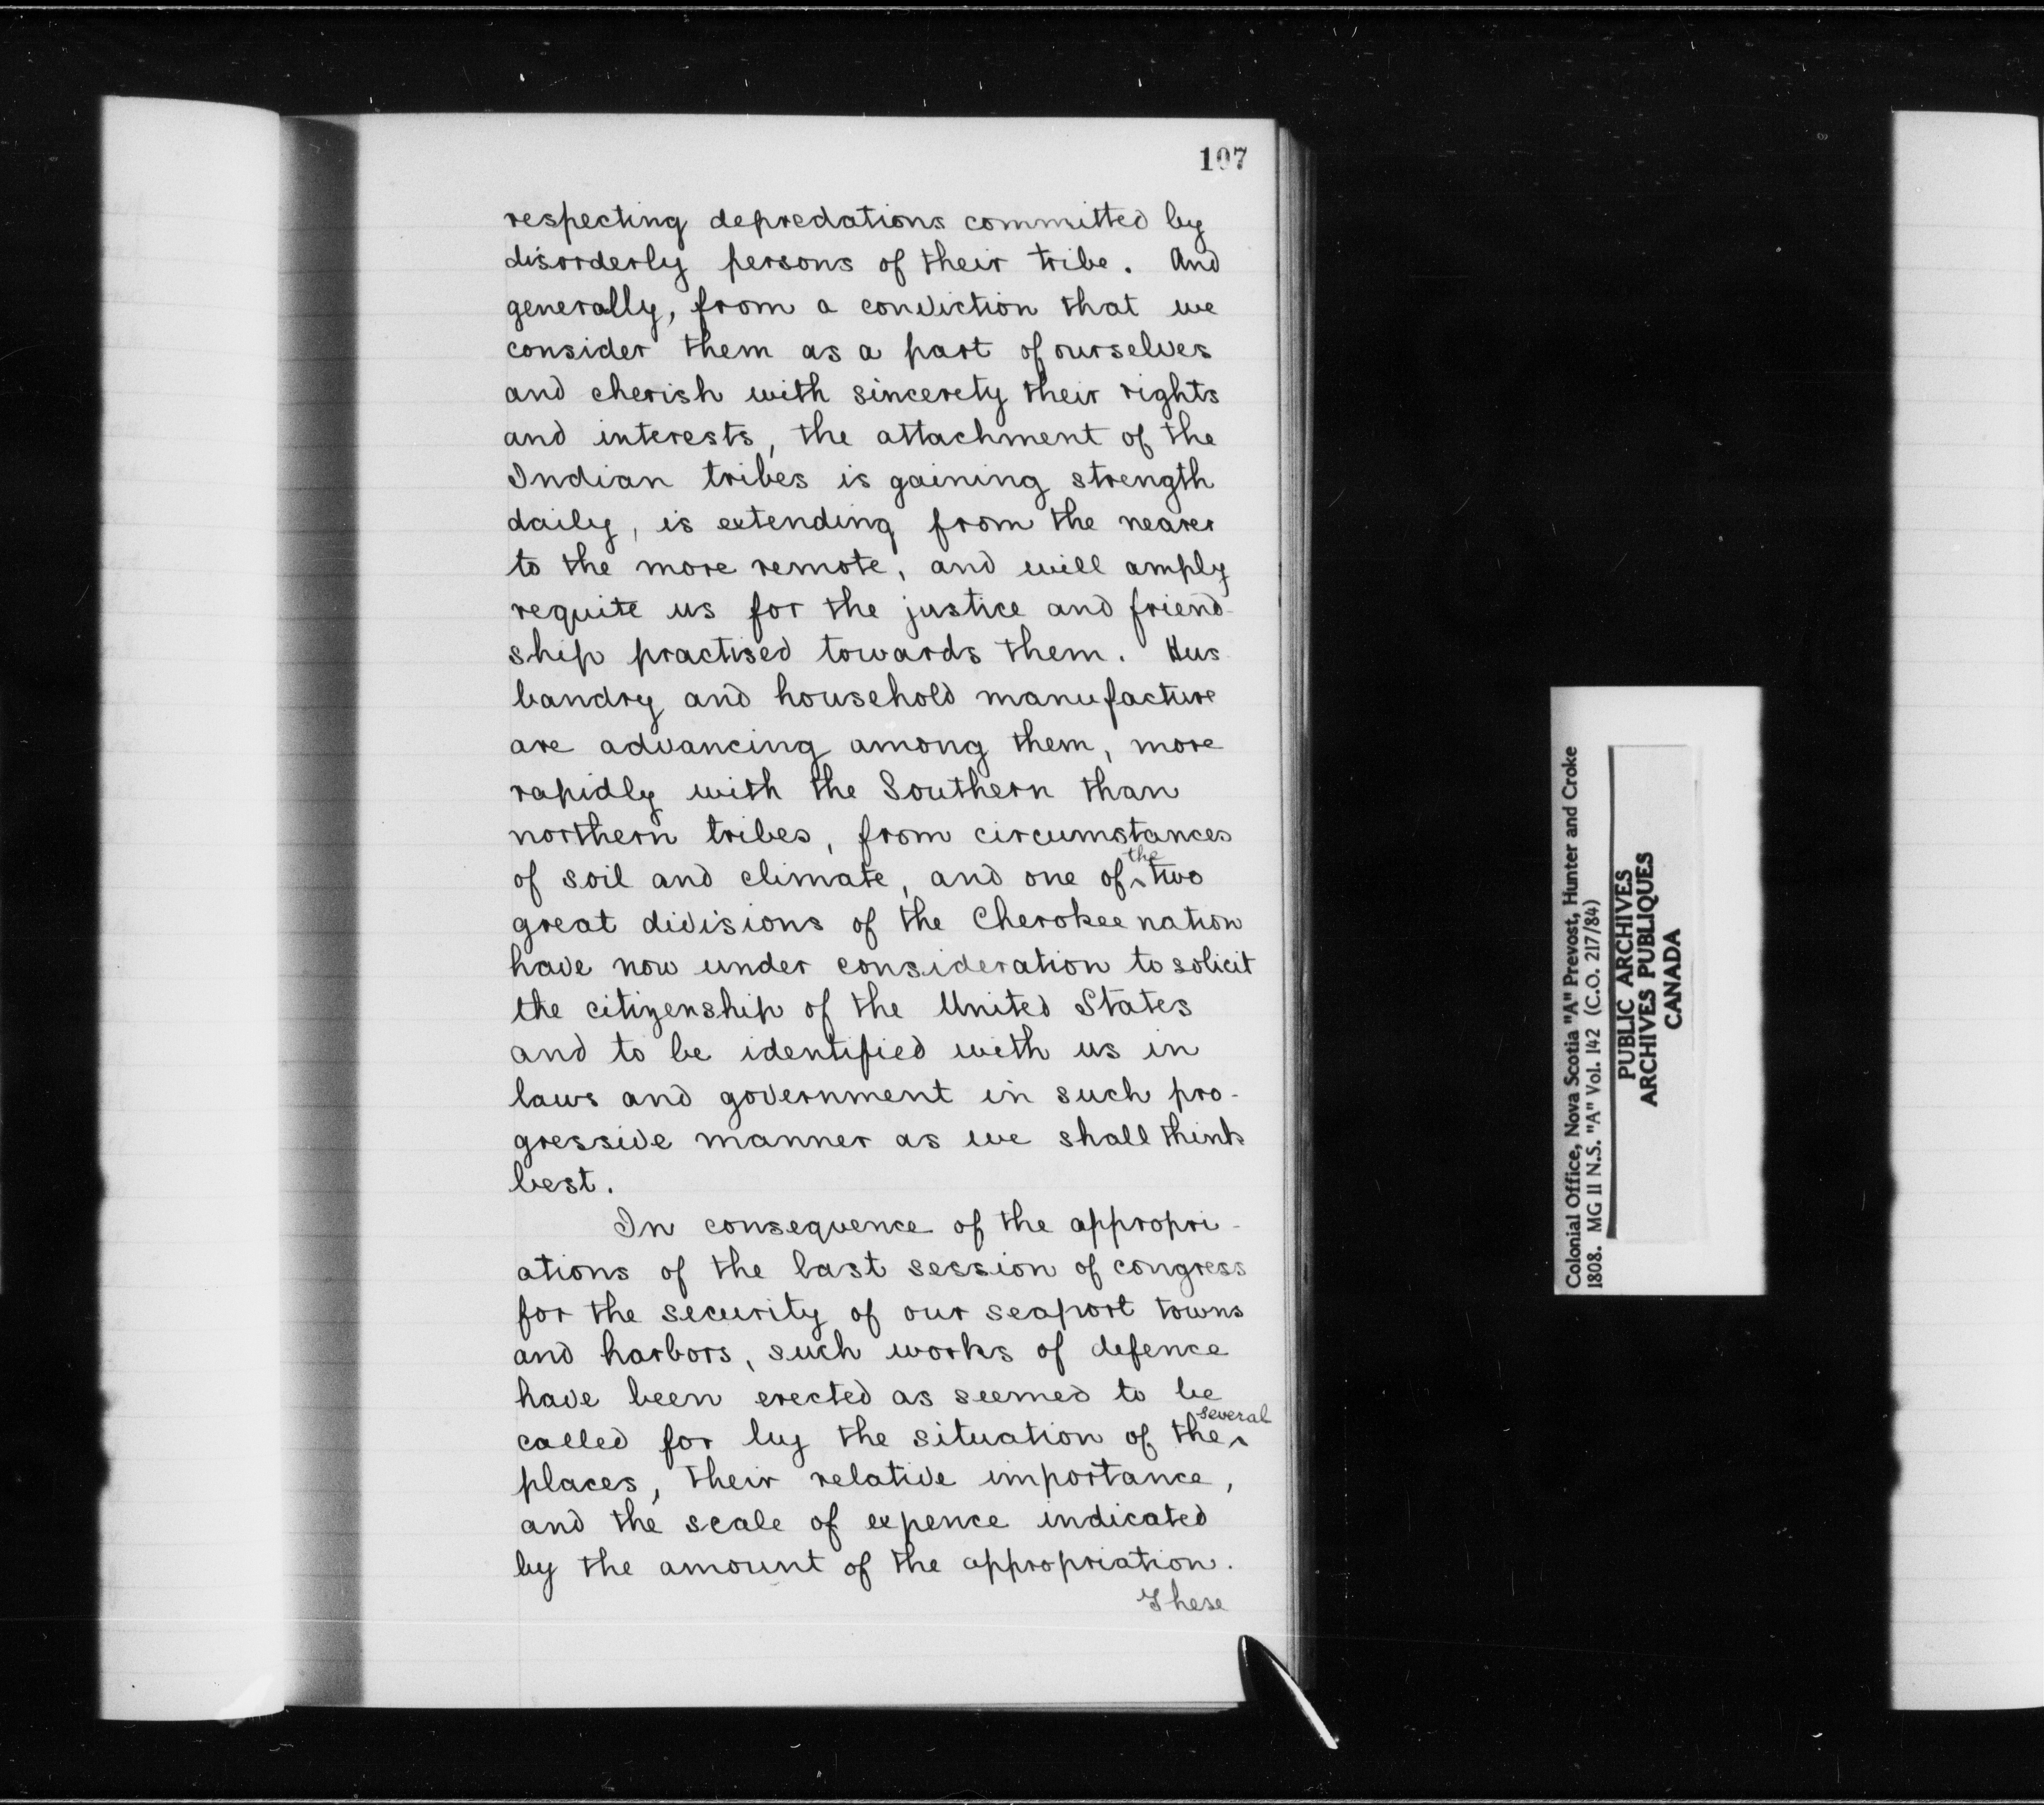 107
respecting depredations committed by
disorderly persons of their tribe. And
generally, from a conviction that we
consider them as a part of ourselves
and cherish with sincerety their rights
and interests, the attachment of the
Indian tribes is gaining strength
daily, is extending from the nearer
to the more remote, and will amply
requite us for the justice and friend-
ship practised towards them. Hus-
bandry and household manufacture
are advancing among them, more
rapidly with the Southern than
northern tribes, from circumstances
of soil and climate, and one of the two
great divisions of the Cherokee nation
have now under consideration to solicit
the citizenship of the United States
and to be identified with us in
laws and government in such pro-
gressive manner as we shall think
best.
In consequence of the appropri-
ations of the last session of congress
for the security of our seaport towns
and harbors, such works of defence
have been erected as seemed to be
called for by the situation of the several
places, their relative importance,
and the scale of expence indicated
by the amount of the appropriation.
These
Colonial Office, Nova Scotia "A" Prevost, Hunter and Croke
1808. MG 11 N.S. "A" Vol. 142 (C.O. 217/84)
PUBLIC ARCHIVES
ARCHIVES PUBLIQUES
CANADA